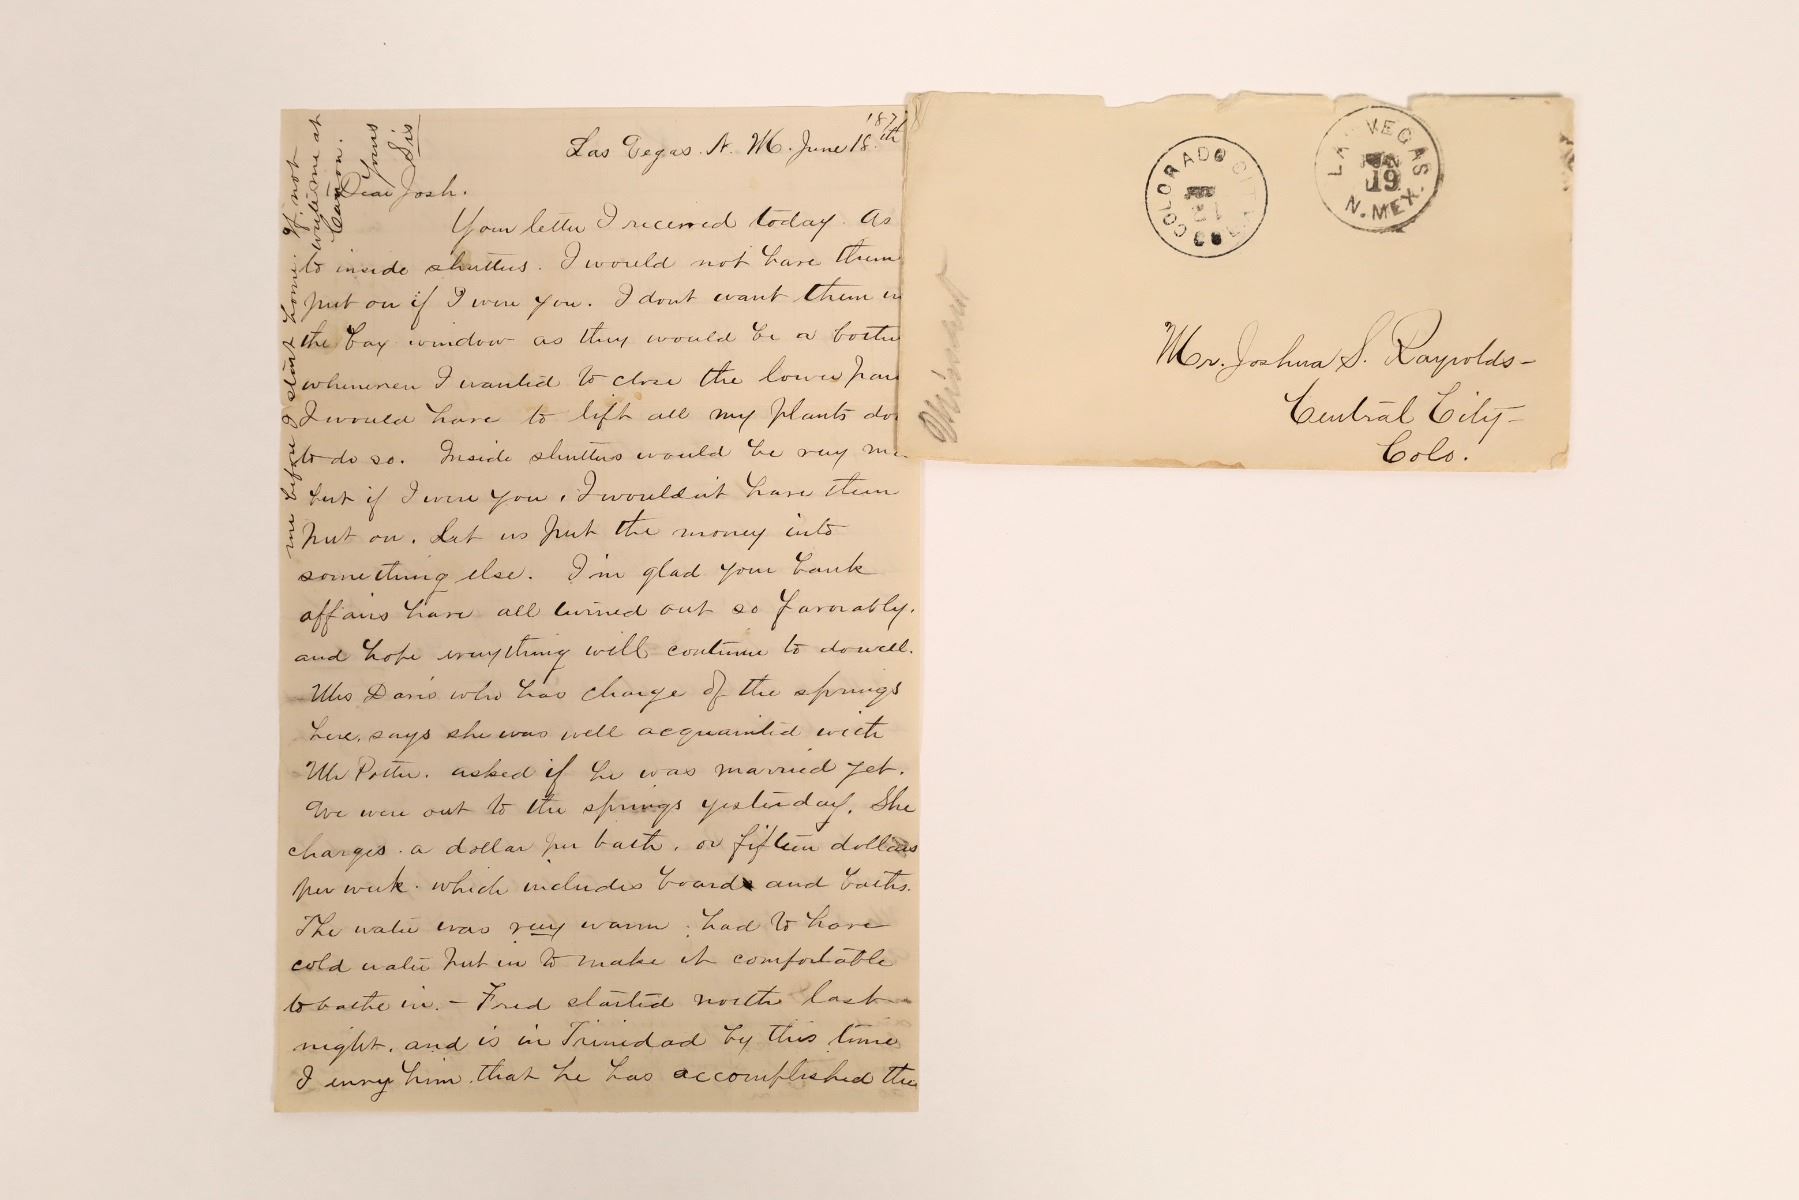 Las Vegas. N. M. June 18th
187
Dear Josh.
Your letter I received today. As
to inside shutters. I would not have them
put on if I were you. I dont want them in
the bay window as they would be a bother
whenever I wanted to close the lower part
I would have to lift all my plants do
to do so. Inside shutters would be very
but if I were you, I wouldn't have them
put on. Let us put the money into
something else. I'm glad your bank
affairs have all turned out so favorably.
and hope everything will continue to do well.
Mrs Davis who has charge of the springs
here, says she was well acquainted with
Mr Potter. asked if he was married yet.
We were out to the springs yesterday. She
charges a dollar per bath, or fifteen dollars
per week. which includes board and baths.
The water was very warm, had to have
cold water put in to make it comfortable
to bathe in. - Fred started north last
night, and is in Trinidad by this time
I envy him that he has accomplished the
me before I start home. If not
write me at
Canon.
Yours
Sis
COLORADO CITY
21
COLO
LAS VEGAS
JUN
19
N. MEX.
Missent
Mr. Joshua S. Raynolds-
Central City-
Colo.